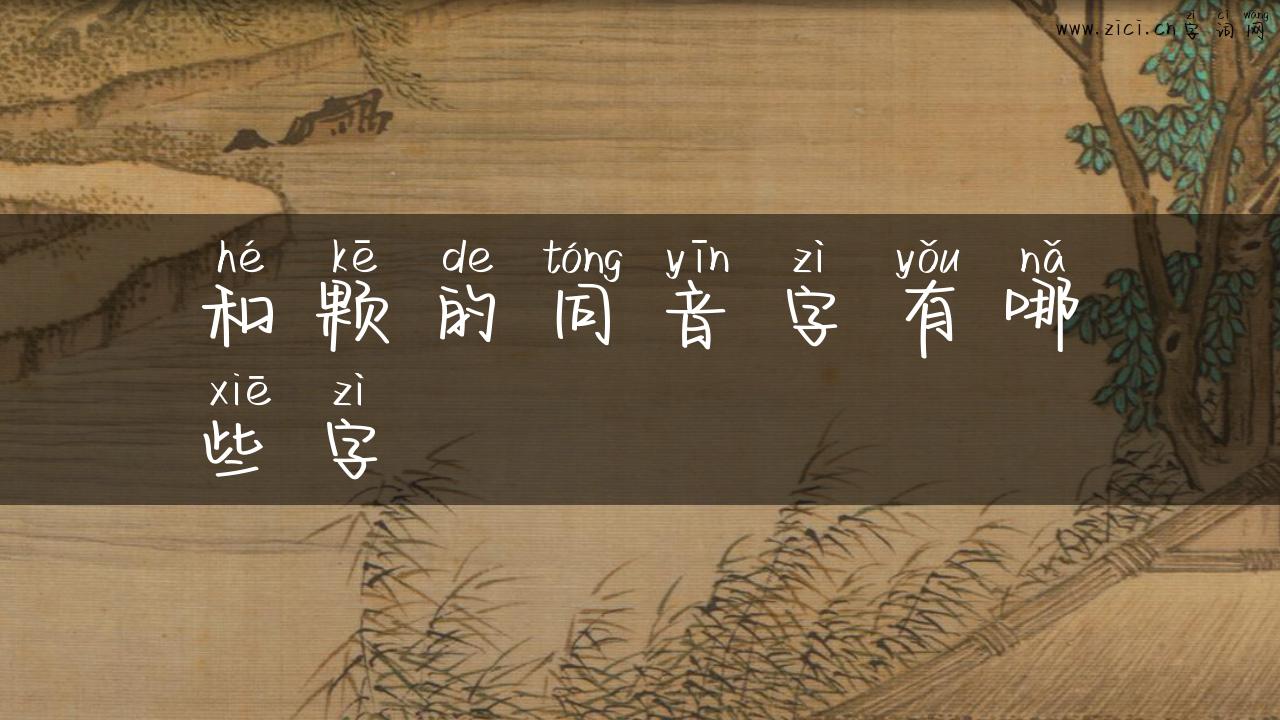 zì cí wǎng
www.zici.cn字词网
hé kē de tóng yīn zì yǒu nǎ
和颗的同音字有哪
xiē zì
些字